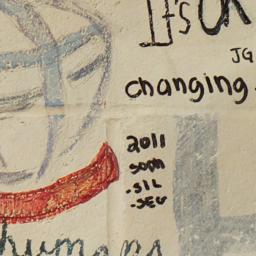 It's OK
JG
changing
2011
soph
-SIL
-SEG
humans